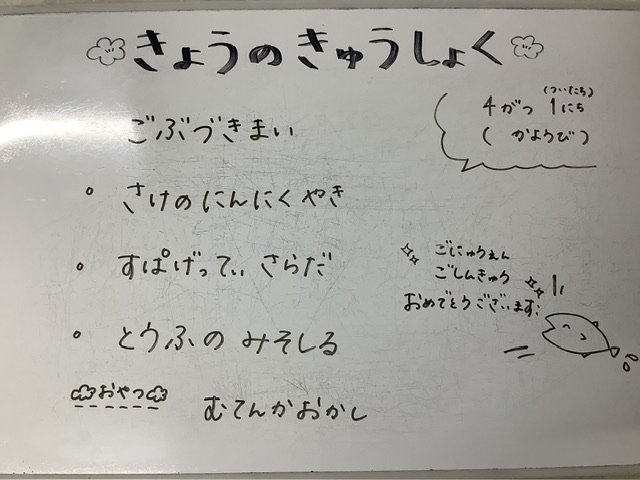 きょうのきゅうしょく
(ついたち)
4がつ 1にち
( かようび )
ごぶづきまい
• さけのにんにくやき
• すぱげってぃさらだ
• とうふのみそしる
ごにゅうえん
ごしんきゅう
おめでとうございます:
おやつ むてんかおかし